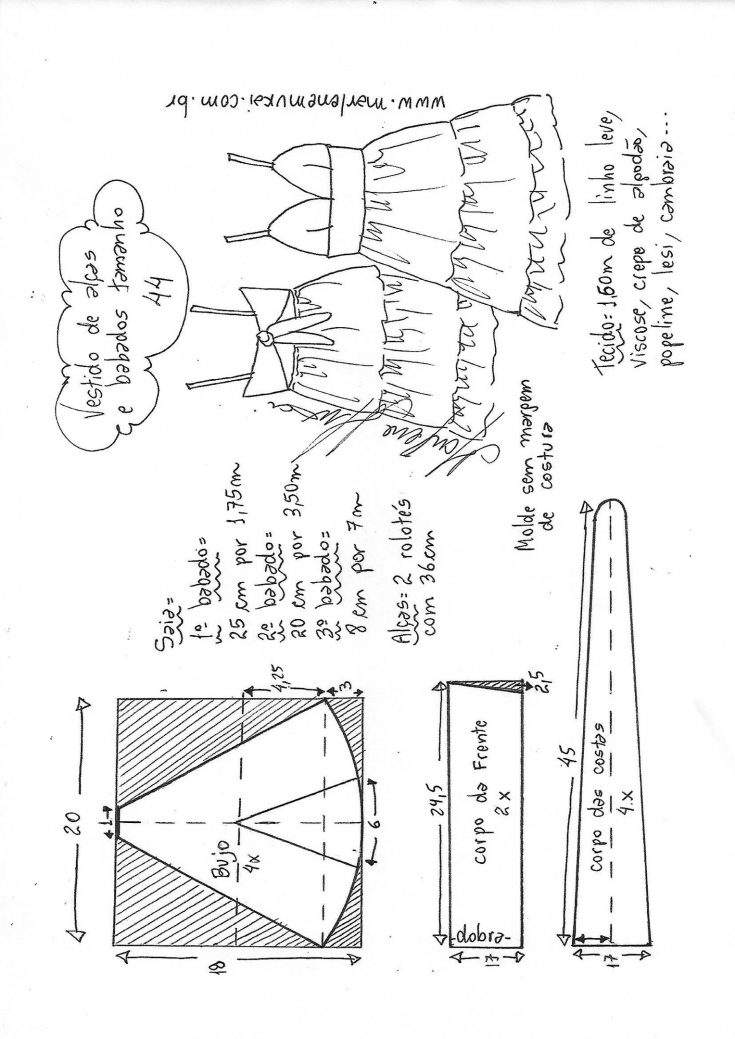 Vestido de alças
e babados tamanho
44
www.marlenemukai.com.br
Saia=
1º babado=
25 cm por 1,75m
2º babado=
20 cm por 3,50m
3º babado=
8 cm por 7m
Alças= 2 rolotés
com 36cm
Marlene Mukai
Tecido= 1,60m de linho leve,
viscose, crepe de algodão,
popeline, lesi, cambraia...
Molde sem margem
de costura
20
1
18
Bujo
4x
4,25
3
6
24,5
corpo da Frente
2x
2,5
-dobra-
17
45
corpo das costas
4x
17